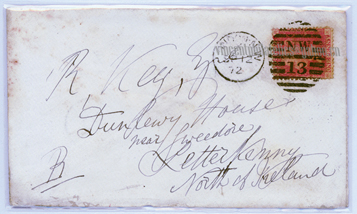 R. Key, Esq
Dunlewy House
near Gweedore
Letterkenny
North of Ireland
B
12
72
NW
13